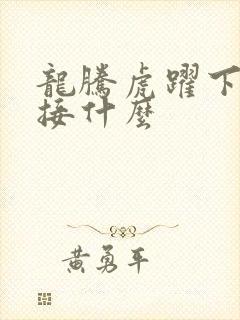 龍騰虎躍下
接什麼
黃勇平